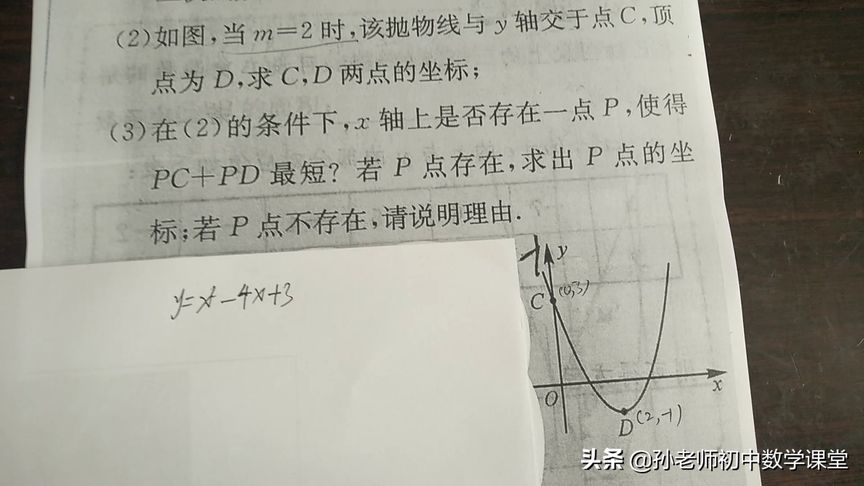 (2)如图,当 m=2 时,该抛物线与 y 轴交于点 C,顶
点为 D,求 C,D 两点的坐标;
(3)在(2)的条件下,x 轴上是否存在一点 P,使得
PC+PD 最短? 若 P 点存在,求出 P 点的坐
标;若 P 点不存在,请说明理由.
y=x²-4x+3
y
C (0,3)
O
x
D(2,-1)
头条 @孙老师初中数学课堂